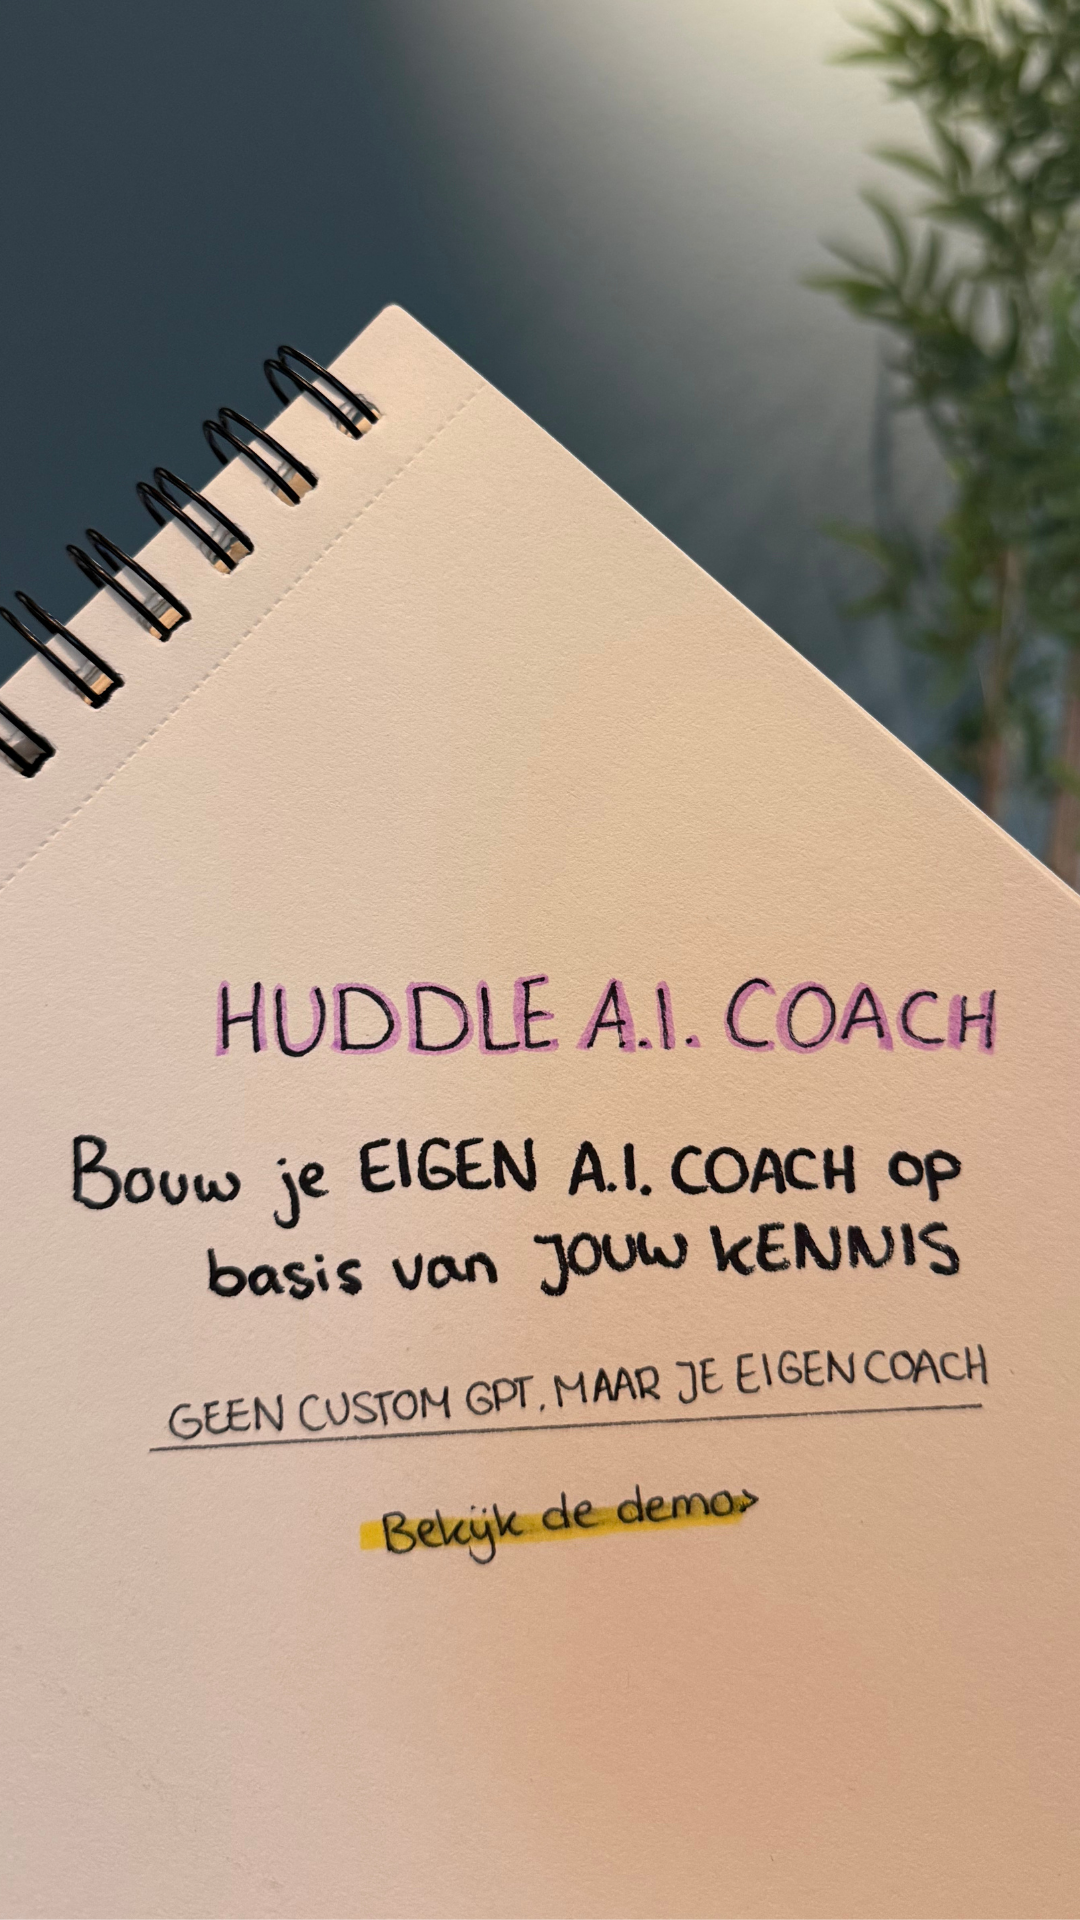 HUDDLE A.I. COACH
Bouw je EIGEN A.I. COACH op
basis van JOUW KENNIS
GEEN CUSTOM GPT, MAAR JE EIGEN COACH
Bekijk de demo>